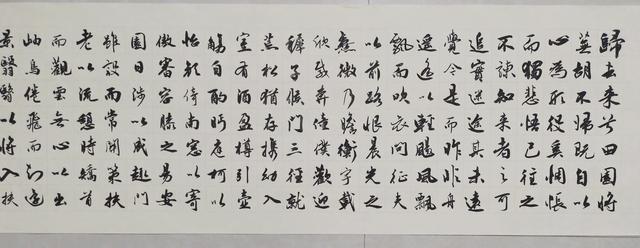 歸去來兮田園將
蕪胡不歸既自以
心為形役奚惆悵
而獨悲悟已往之
不諫知來者之可
追實迷途其未遠
覺今是而昨非舟
遙遙以輕颺風飄
飄而吹衣問征夫
以前路恨晨光之
熹微乃瞻衡宇載
欣載奔僮僕歡迎
稺子候門三徑就
荒松猶存攜幼入
室有酒盈樽引壺
觴自酌眄庭柯以
怡顏倚南窓以寄
傲審容膝之易安
園日涉以成趣門
雖設而常關策扶
老以流憩時矯首
而觀雲無心以出
岫鳥倦飛而知還
景翳翳以將入扶